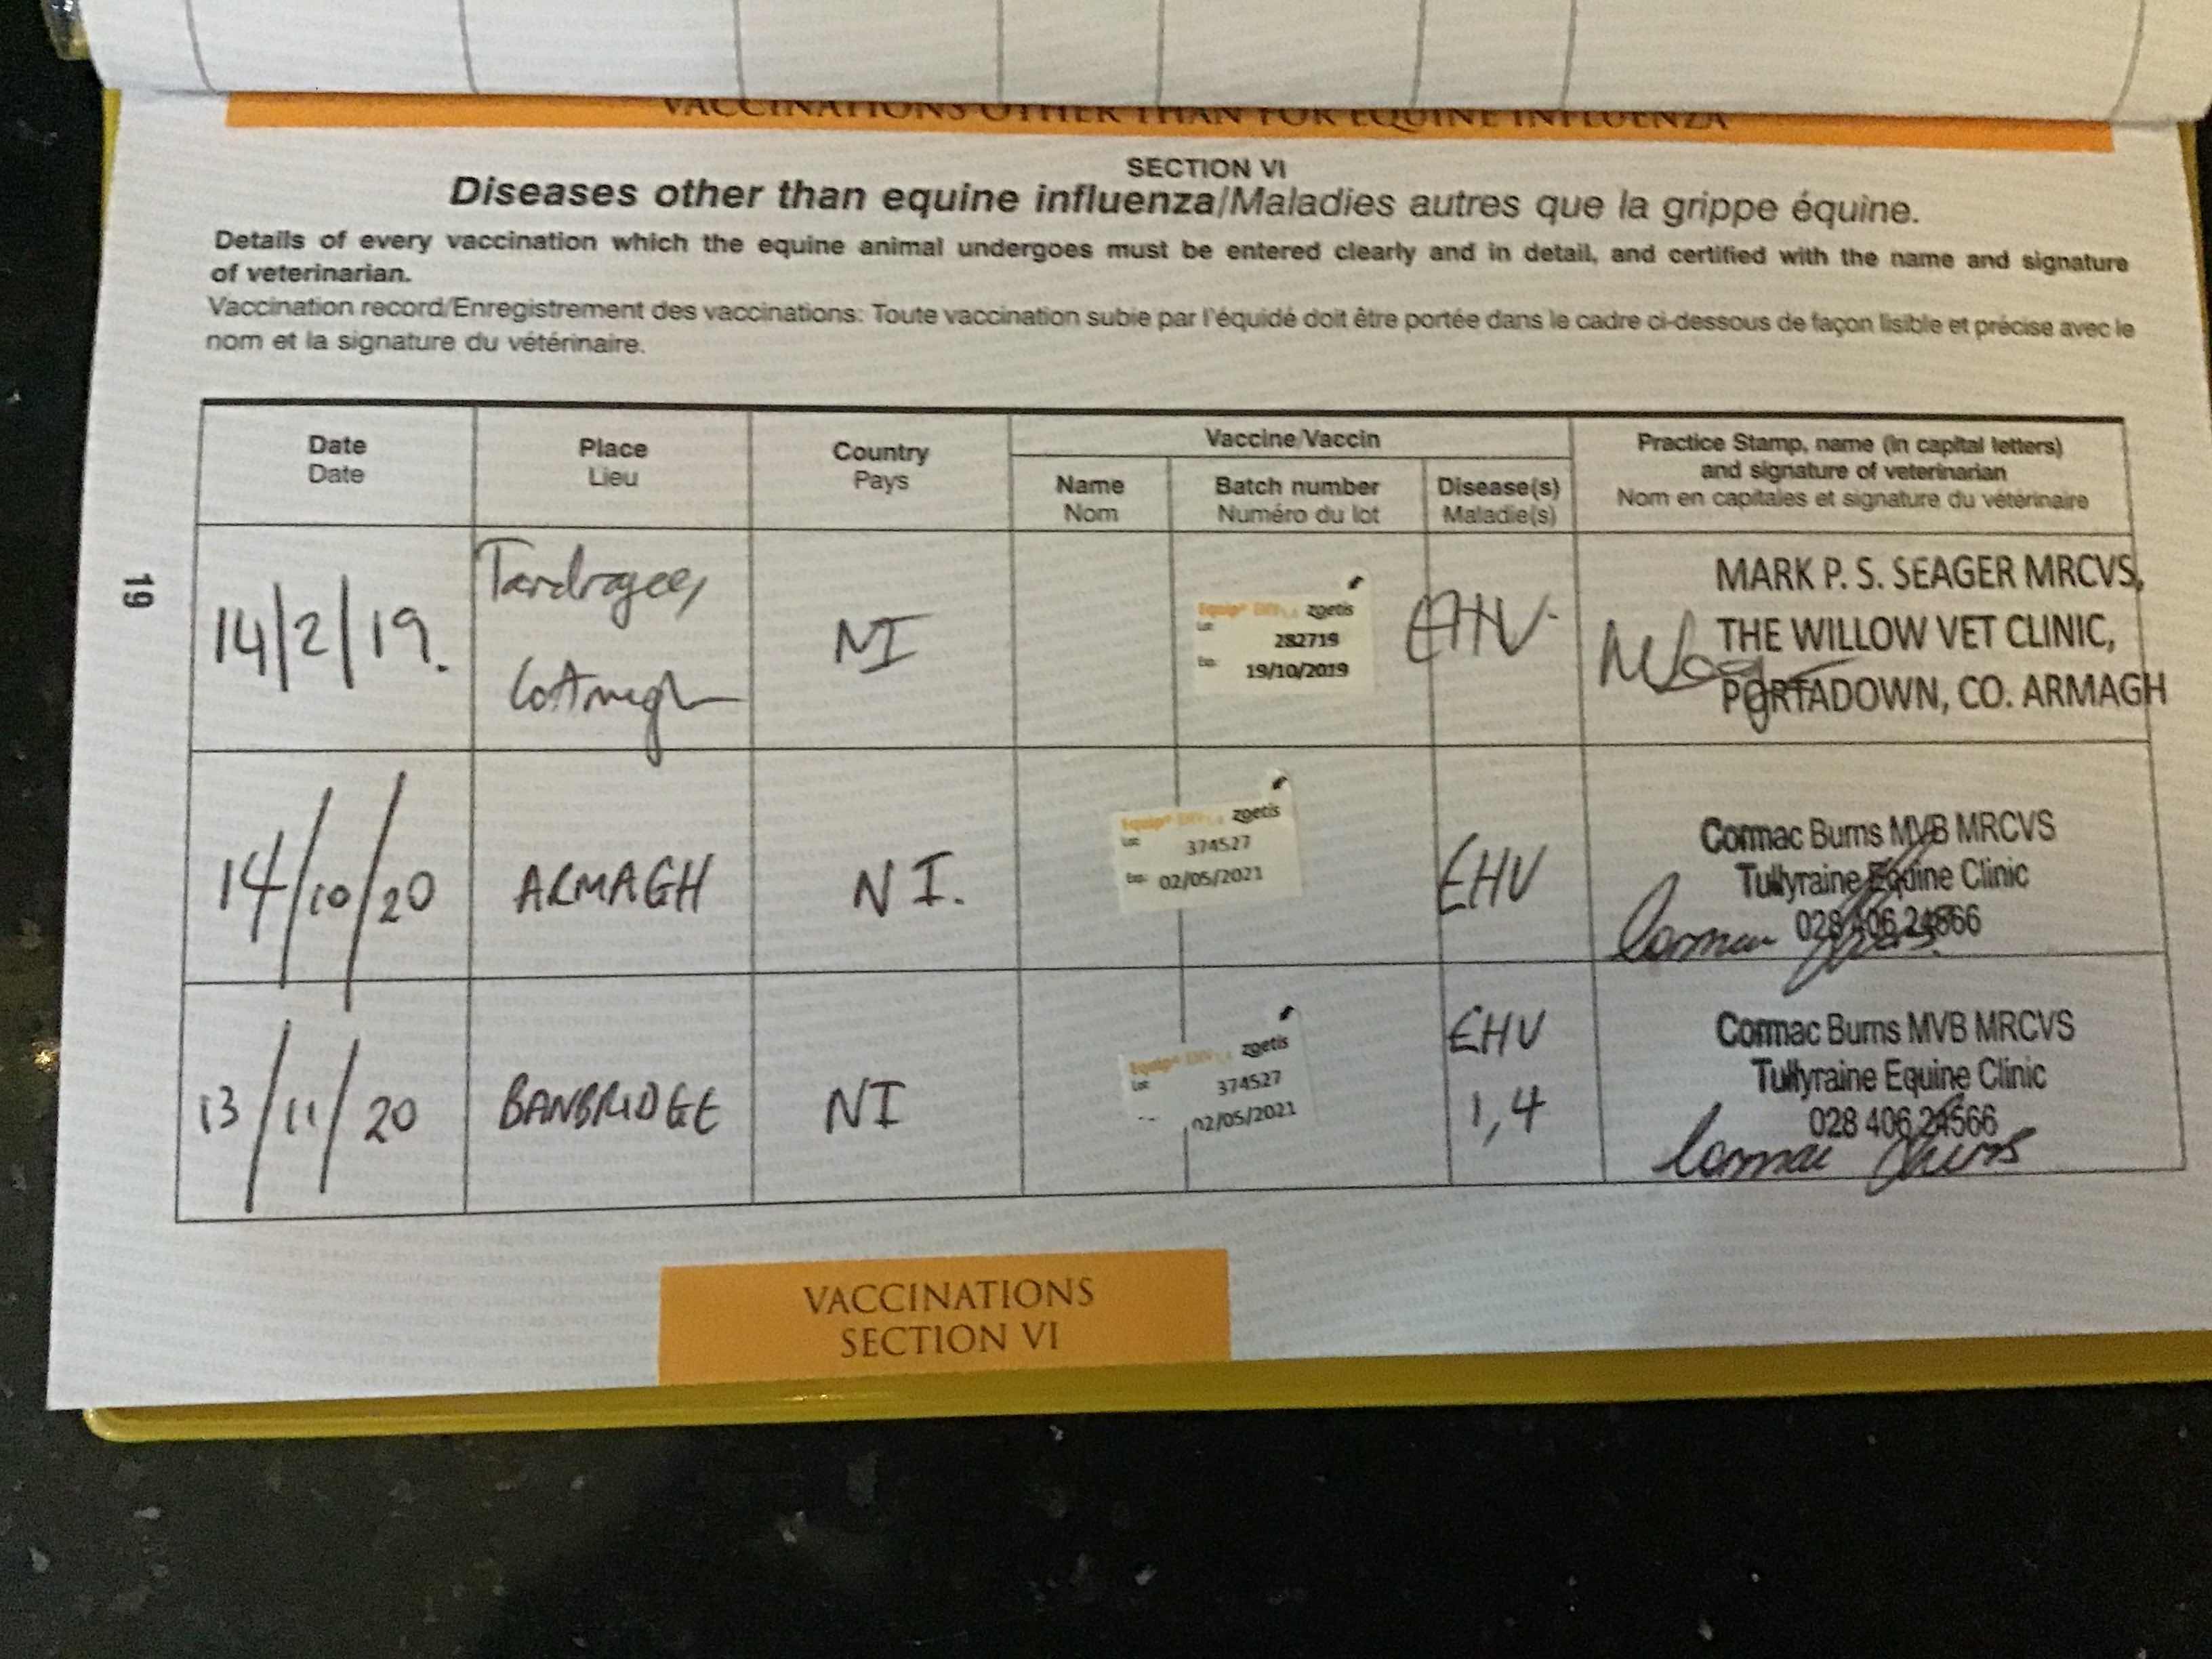 VACCINATIONS OTHER THAN FOR EQUINE INFLUENZA
SECTION VI
Diseases other than equine influenza/Maladies autres que la grippe équine.
Details of every vaccination which the equine animal undergoes must be entered clearly and in detail, and certified with the name and signature
of veterinarian.
Vaccination record/Enregistrement des vaccinations: Toute vaccination subie par l'équidé doit être portée dans le cadre ci-dessous de façon lisible et précise avec le
nom et la signature du vétérinaire.
Date
Date
Place
Lieu
Country
Pays
Vaccine/Vaccin
Name
Nom
Batch number
Numéro du lot
Disease(s)
Maladie(s)
Practice Stamp, name (in capital letters)
and signature of veterinarian
Nom en capitales et signature du vétérinaire
14/2/19.
Tandragee,
Co Armagh
NI
Equip® EHV zoetis
Lot 282719
Exp. 19/10/2019
EHV
MARK P. S. SEAGER MRCVS,
THE WILLOW VET CLINIC,
PORTADOWN, CO. ARMAGH
14/10/20
ARMAGH
NI.
Equip® EHV zoetis
Lot 374527
Exp. 02/05/2021
EHV
Cormac Burns MVB MRCVS
Tullyraine Equine Clinic
028 406 24566
Cormac Burns
13/11/20
BANBRIDGE
NI
Equip® EHV zoetis
Lot 374527
02/05/2021
EHV
1,4
Cormac Burns MVB MRCVS
Tullyraine Equine Clinic
028 406 24566
Cormac Burns
19
VACCINATIONS
SECTION VI